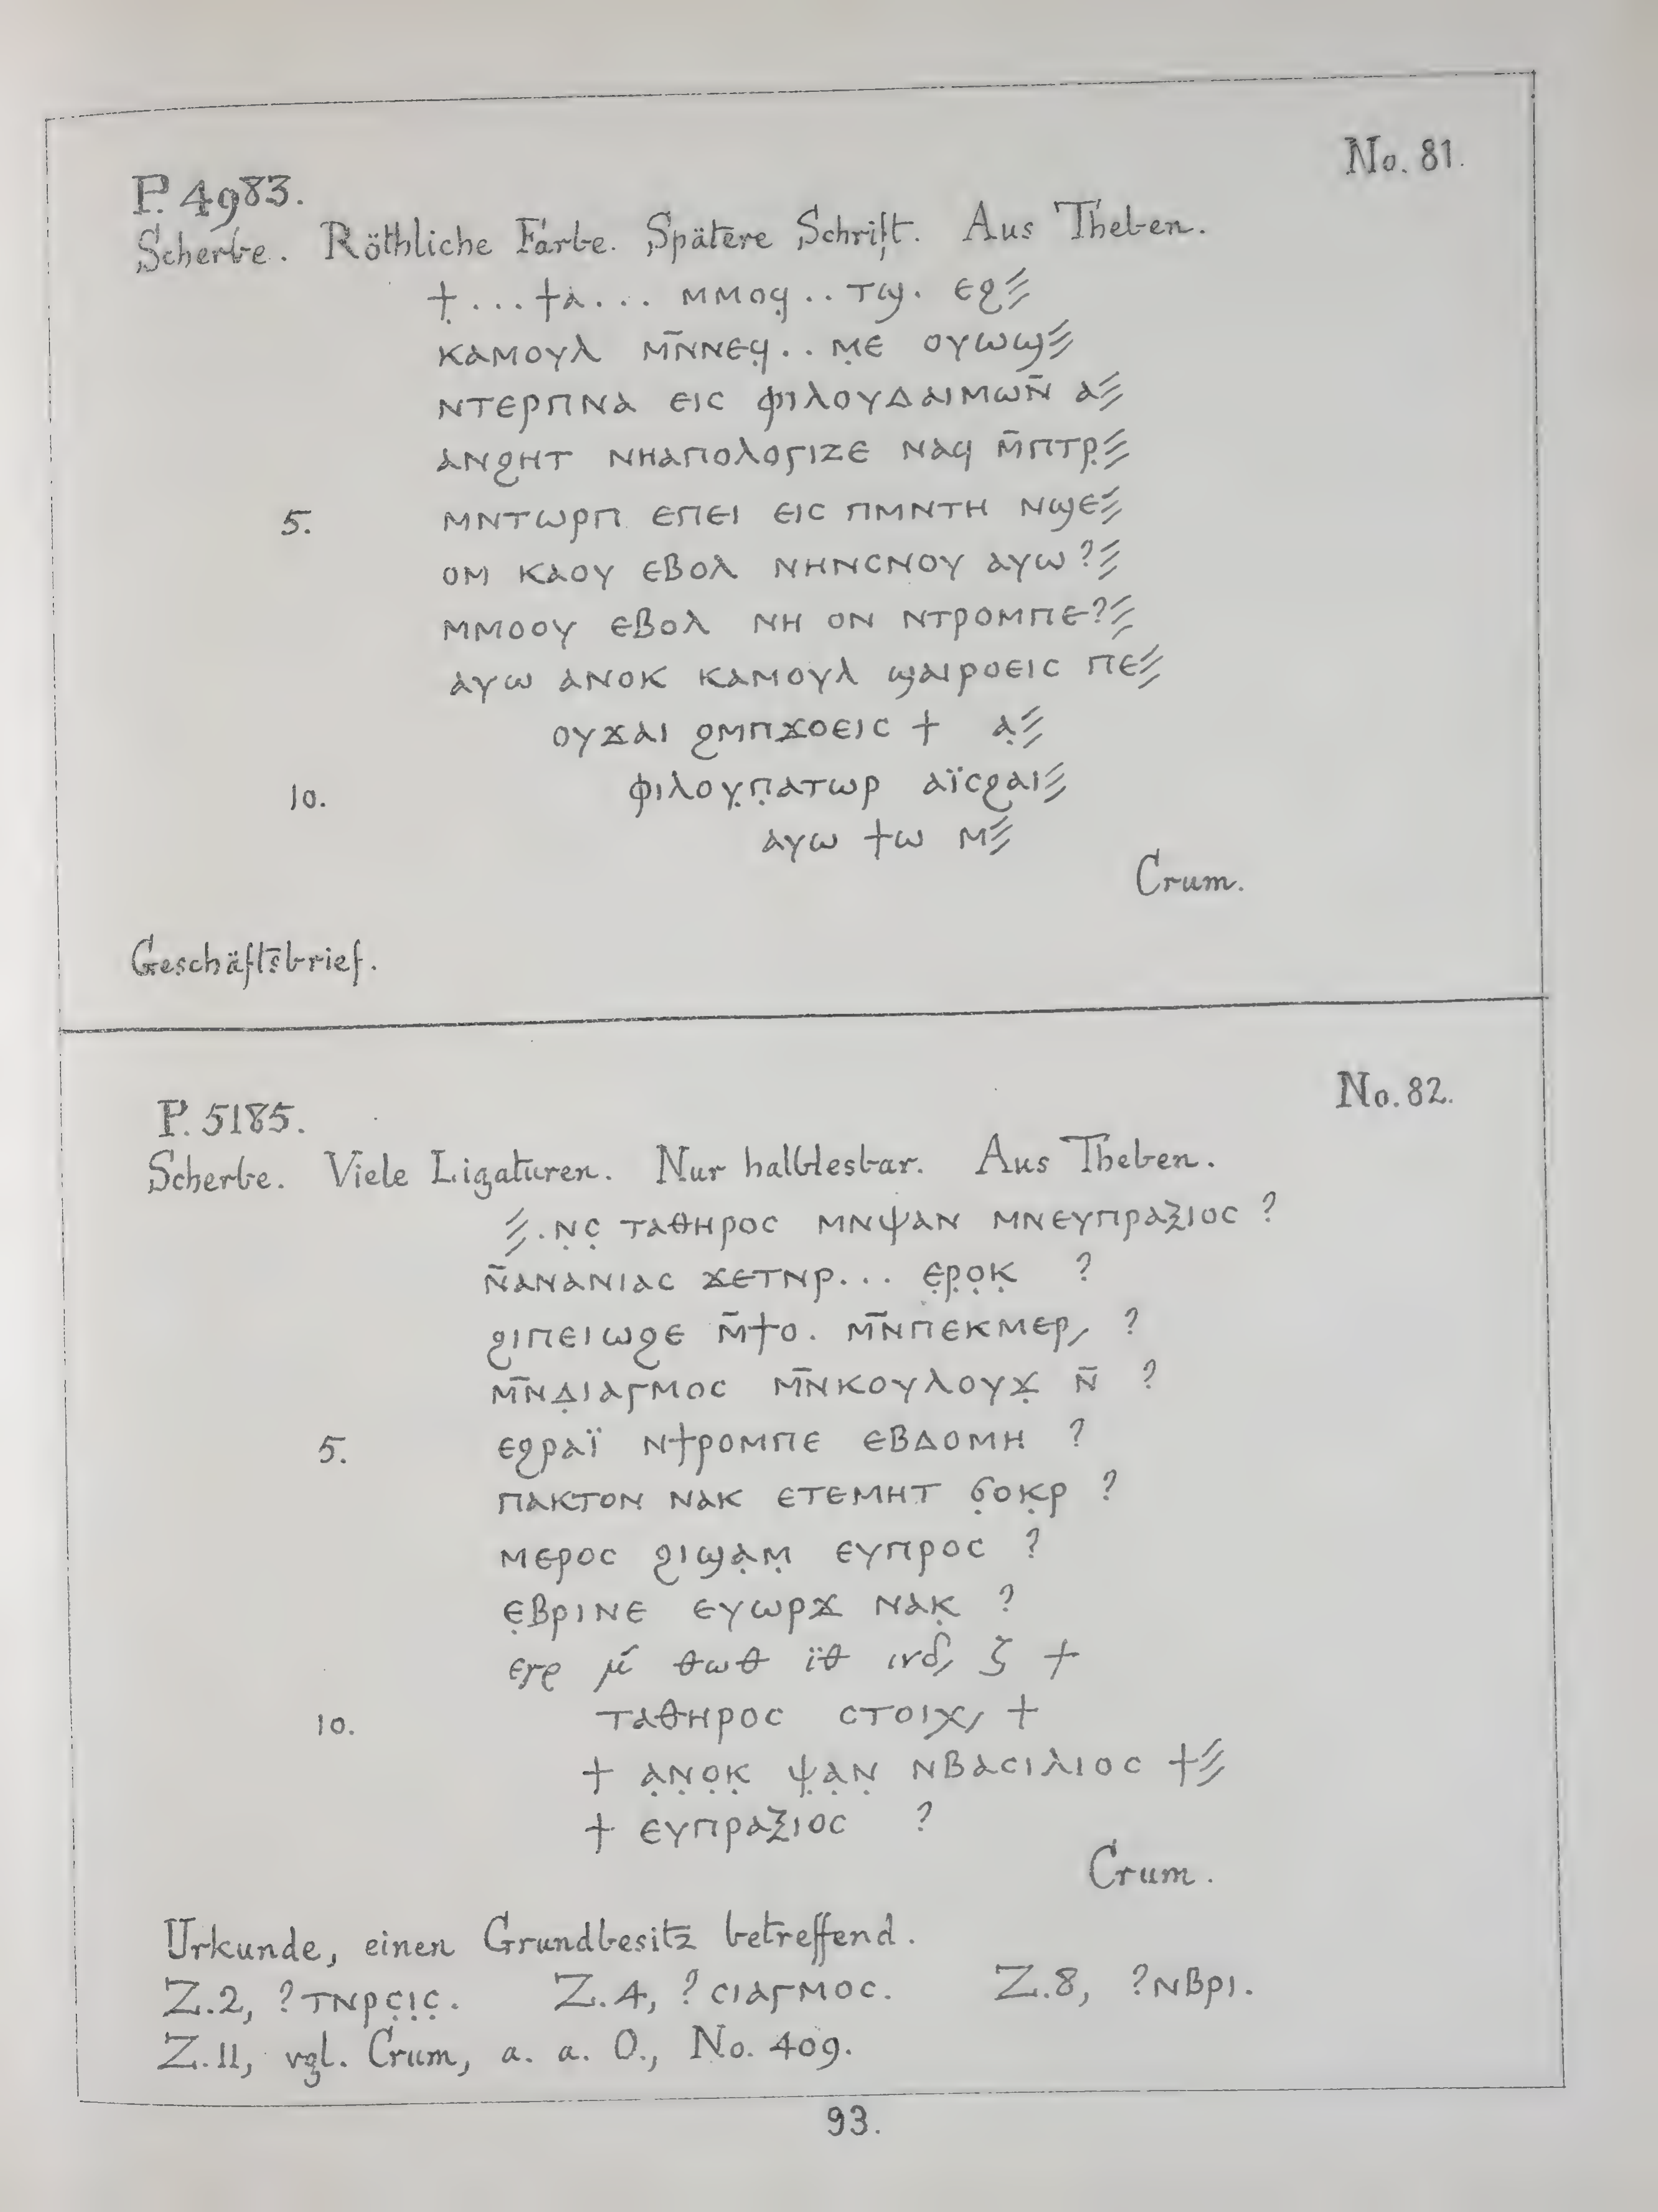 No. 81.
P. 4983.
Scherbe. Röthliche Farbe. Spätere Schrift. Aus Theben.
ϯ̣...ϯⲁ... ⲙⲙⲟϥ̣..ⲧϣ̣. ⲉϩ⳽
ⲕⲁⲙⲟⲩⲗ ⲙ̄ⲛⲛⲉϥ̣..ⲙ̣ⲉ ⲟⲩⲱϣ⳽
ⲛⲧⲉⲣⲡⲛⲁ ⲉⲓⲥ ⲫⲓⲗⲟⲩⲇⲁⲓⲙⲱⲛ̄ ⲁ⳽
ⲁⲛϩⲏⲧ ⲛⲏⲁⲡⲟⲗⲟⲅⲓⲍⲉ ⲛⲁϥ ⲙ̄ⲡⲧⲣ̣⳽
5. ⲙⲛⲧⲱⲣⲡ ⲉⲡⲉⲓ ⲉⲓⲥ ⲡⲙⲛⲧⲏ ⲛϣⲉ⳽
ⲟⲙ ⲕⲁⲟⲩ ⲉⲃⲟⲗ ⲛⲏⲛⲥⲛⲟⲩ ⲁⲩⲱ ?⳽
ⲙⲙⲟⲟⲩ ⲉⲃⲟⲗ ⲛⲏ ⲟⲛ ⲛⲧⲣⲟⲙⲡⲉ?⳽
ⲁⲩⲱ ⲁⲛⲟⲕ ⲕⲁⲙⲟⲩⲗ ϣⲁⲓⲣⲟⲉⲓⲥ ⲡⲉ⳽
ⲟⲩϫⲁⲓ ϩⲙⲡϫⲟⲉⲓⲥ + ⲁ̣⳽
10. ⲫⲓⲗⲟⲩ̣ⲡ̣ⲁⲧⲱⲣ ⲁⲓ̈ⲥϩⲁⲓ⳽
ⲁⲩⲱ ϯⲱ ⲙ⳽
Crum.
Geschäftsbrief.
No. 82.
P. 5185.
Scherbe. Viele Ligaturen. Nur halblesbar. Aus Theben.
⳽.ⲛ̣ⲥ̣ ⲧⲁⲑⲏⲣⲟⲥ ⲙⲛⲯⲁⲛ ⲙⲛⲉⲩⲡⲣⲁⲝⲓⲟⲥ ?
ⲛ̄ⲁⲛⲁⲛⲓⲁⲥ ϫⲉⲧⲛⲣ... ⲉ̣ⲣ̣ⲟ̣ⲕ̣ ?
ϩⲓⲡⲉⲓⲱϩⲉ ⲙ̄ϯⲟ. ⲙ̄ⲛⲡⲉⲕⲙⲉⲣ, ?
ⲙ̄ⲛⲇ̣ⲓⲁⲅⲙⲟⲥ ⲙ̄ⲛⲕⲟⲩⲗⲟⲩϫ̣ ⲛ̄ ?
5. ⲉϩⲣⲁⲓ̈ ⲛϯⲣⲟⲙⲡⲉ ⲉⲃⲇⲟⲙⲏ ?
ⲡⲁⲕⲧⲟⲛ ⲛⲁⲕ ⲉⲧⲉⲙⲏⲧ ϭ̣ⲟⲕ̣ⲣ ?
ⲙⲉⲣⲟⲥ ϩⲓϣⲁ̣ⲙ̣ ⲉⲩⲡⲣⲟⲥ ?
ⲉ̣ⲃⲣⲓⲛⲉ ⲉⲩⲱⲣϫ ⲛⲁⲕ̣ ?
εγρ μ́ θωθ ϊθ ινδ, ζ +
10. ⲧⲁⲑⲏⲣⲟⲥ ⲥⲧⲟⲓⲭ, +
+ ⲁ̣ⲛ̣ⲟ̣ⲕ̣ ⲯ̣ⲁ̣ⲛ̣ ⲛⲃⲁⲥⲓⲗⲓⲟⲥ +⳽
+ ⲉⲩⲡⲣⲁⲝⲓⲟⲥ ?
Crum.
Urkunde, einen Grundbesitz betreffend.
Z.2, ?ⲧⲛⲣⲥ̣ⲓ̣ⲥ̣. Z.4, ?ⲥⲓⲁⲅⲙⲟⲥ. Z.8, ?ⲛⲃⲣⲓ.
Z.11, vgl. Crum, a. a. O., No. 409.
93.